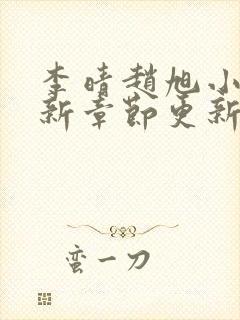 李晴趙旭小
新章節更新
蛮一刀